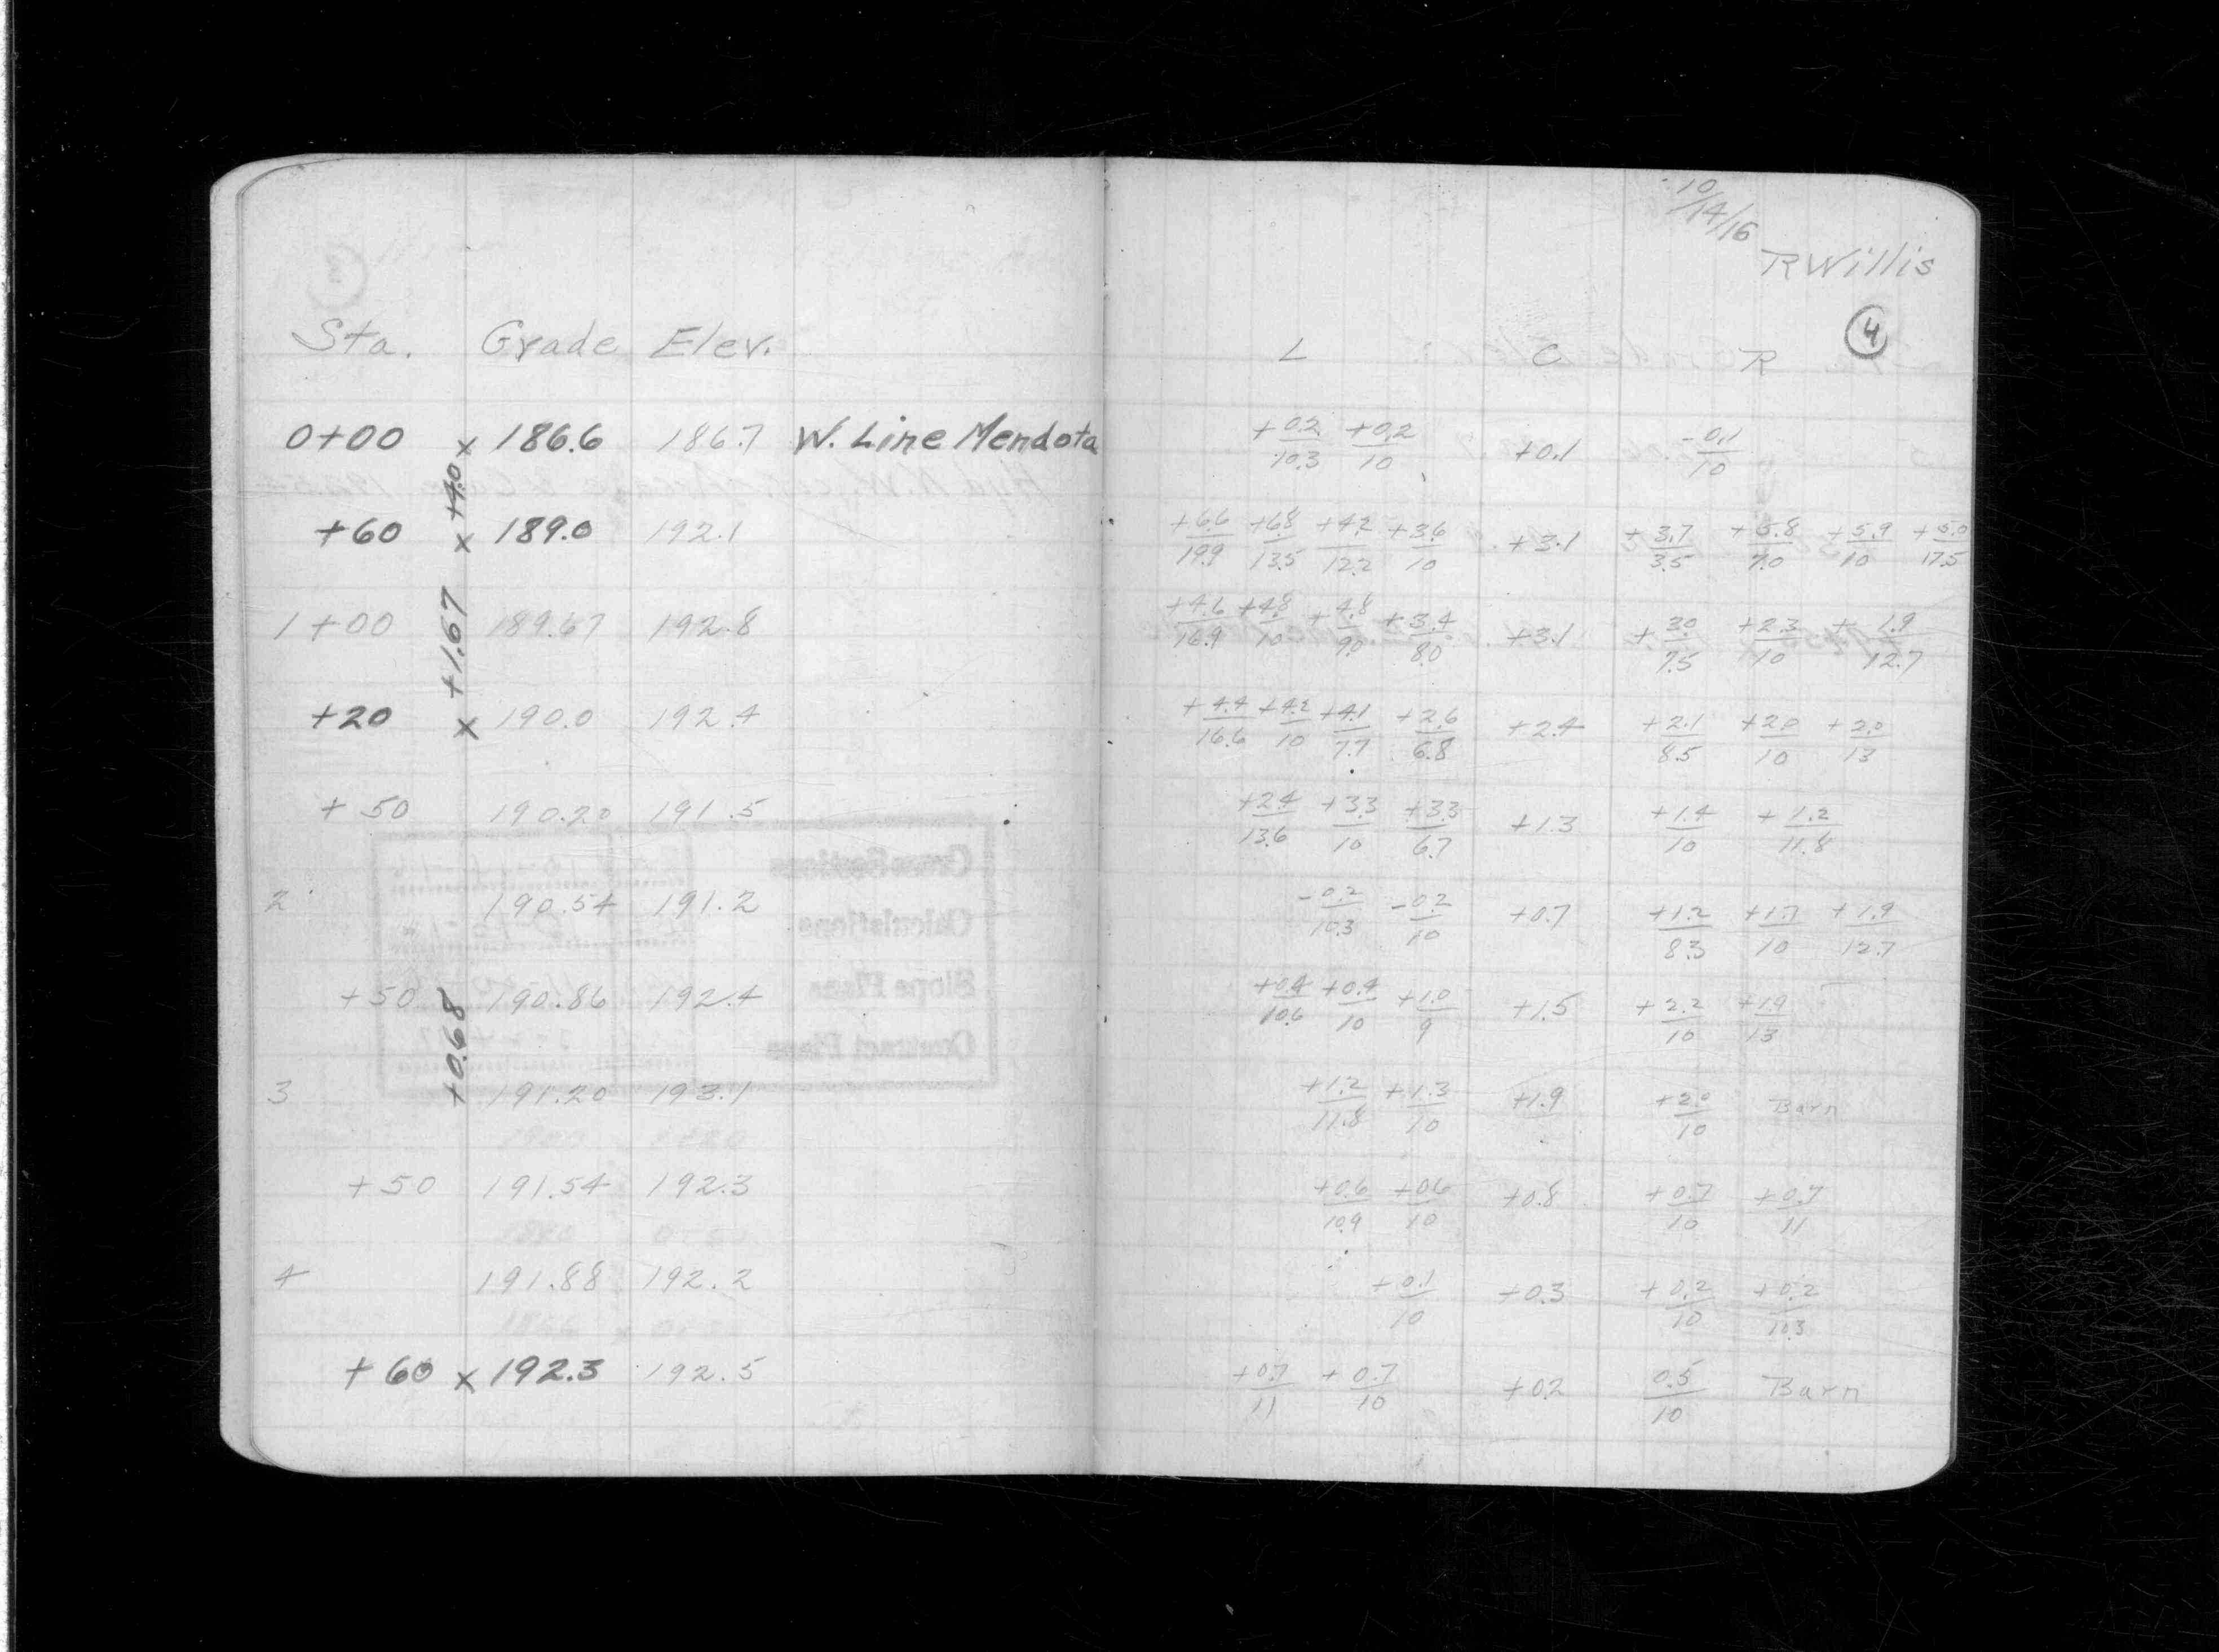 10/14/16
R Willis
4
Sta. Grade Elev. L C R
0+00 x 186.6 186.7 W. Line Mendota +0.2/10.3 +0.2/10 +0.1 -0.1/10
+4.0
+60 x 189.0 192.1 +6.6/19.9 +6.8/13.5 +4.2/12.2 +3.6/10 +3.1 +3.7/3.5 +5.8/7.0 +5.9/10 +5.0/17.5
+1.67
1+00 189.67 192.8 +4.6/16.9 +4.8/10 +4.8/9.0 +3.4/8.0 +3.1 +3.0/7.5 +2.3/10 +1.9/12.7
+20 x 190.0 192.4 +4.4/16.6 +4.2/10 +4.1/7.7 +2.6/6.8 +2.4 +2.1/8.5 +2.0/10 +2.0/13
+50 190.20 191.5 +2.4/13.6 +3.3/10 +3.3/6.7 +1.3 +1.4/10 +1.2/11.8
2 190.54 191.2 -0.2/10.3 -0.2/10 +0.7 +1.2/8.3 +1.7/10 +1.9/12.7
+50 190.86 192.4 +0.4/10.6 +0.4/10 +1.0/9 +1.5 +2.2/10 +1.9/13
+0.68
3 191.20 193.1 +1.2/11.8 +1.3/10 +1.9 +2.0/10 Barn
+50 191.54 192.3 +0.6/10.9 +0.6/10 +0.8 +0.7/10 +0.7/11
4 191.88 192.2 +0.1/10 +0.3 +0.2/10 +0.2/10.3
+60 x 192.3 192.5 +0.7/11 +0.7/10 +0.2 0.5/10 Barn